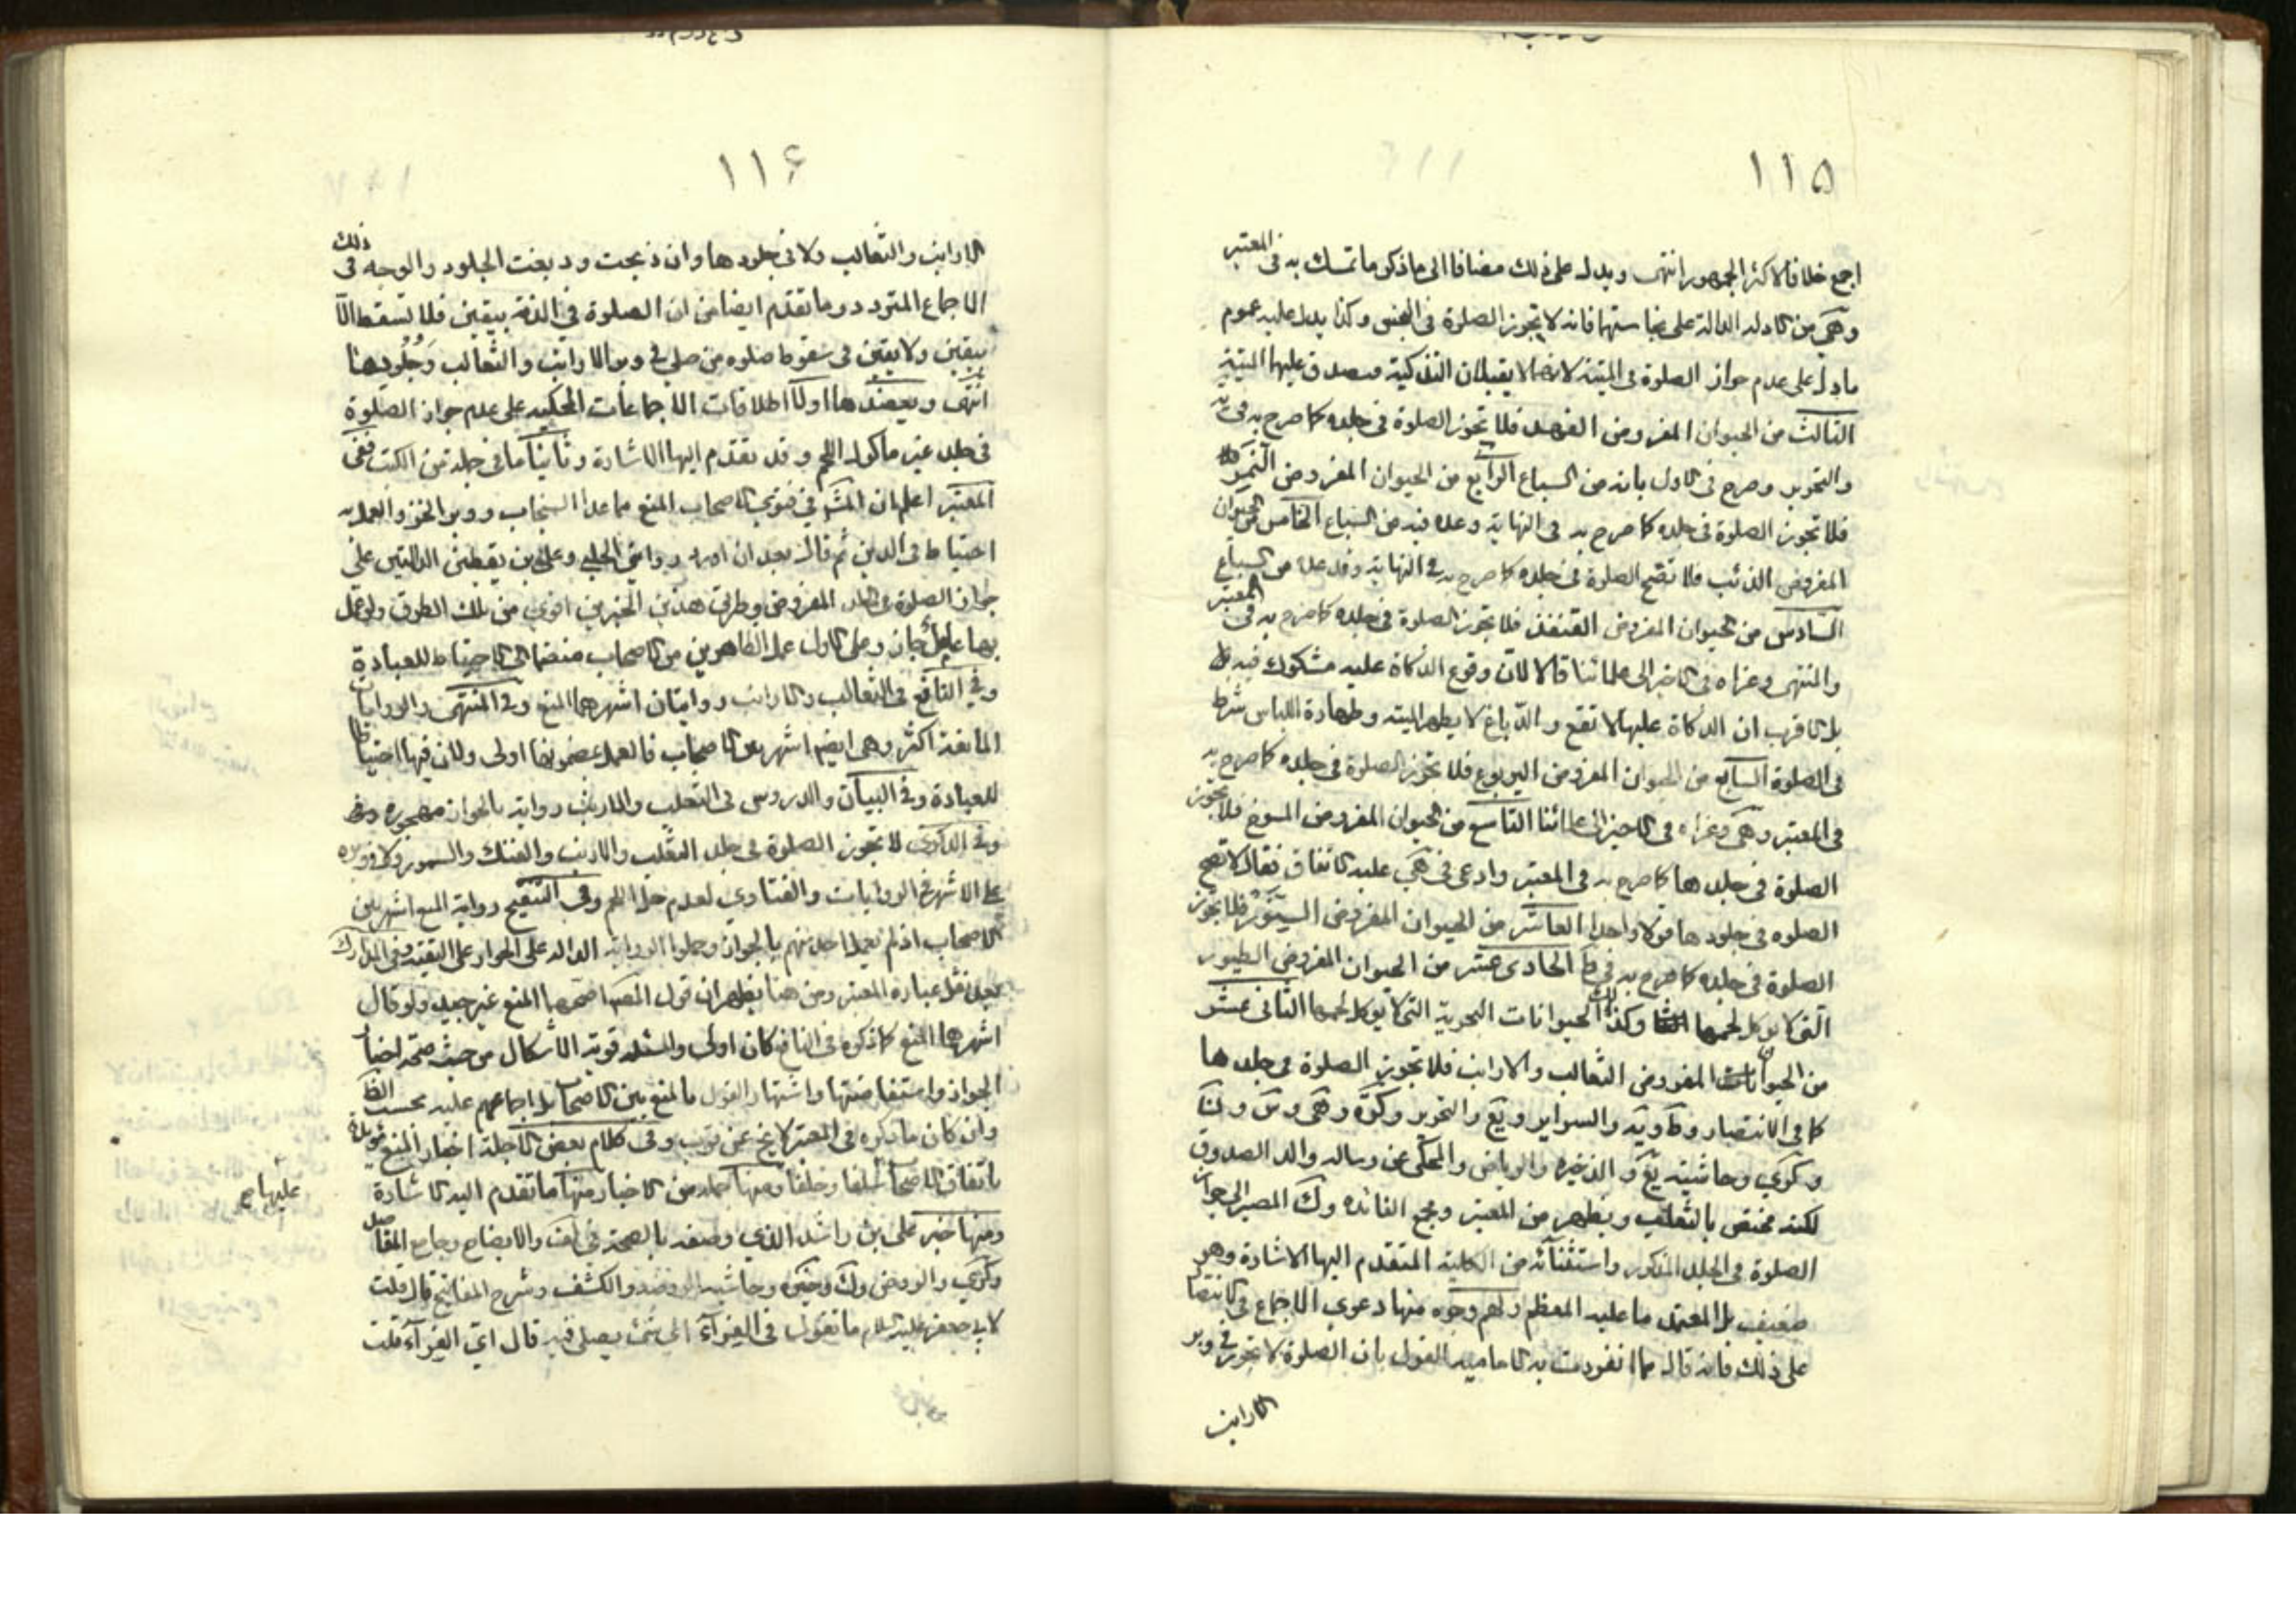 ١١٥
اجمع خلافا لاكثر الجمهور انتهى ويدل على ذلك مضافا الى ما ذكر ما تمسك به في المعتبر
وهى من الادلة الدالة على نجاستهما فانه لا تجوز الصلوة في النجس وكذا يدل عليه عموم
ما دل على عدم جواز الصلوة في الميتة لانهما لا يقبلان التذكية فيصدق عليهما الميتة
الثالث من الحيوان المفروض الفهد فلا تجوز الصلوة في جلده كما صرح به في يه
والتحرير وصرح في الاول بانه من السباع الرابع من الحيوان المفروض النمر
فلا تجوز الصلوة في جلده كما صرح به في النهاية وعده فيه من السباع الخامس من الحيوان
المفروض الذئب فلا تصح الصلوة في جلده كما صرح به في النهاية وقد عده من السباع
السادس من الحيوان المفروض القنفذ فلا تجوز الصلوة في جلده كما صرح به في المعتبر
والمنتهى وعزاه في الاخير الى علمائنا قالا لان وقوع الذكاة عليه مشكوك فيه
بل الاقرب ان الذكاة عليها لا تقع والدباغ لا يطهر الميتة وطهارة اللباس شرط
في الصلوة السابع من الحيوان المفروض اليربوع فلا تجوز الصلوة في جلده كما صرح به
في المعتبر وهى وعزاه في الاخير الى علمائنا التاسع من الحيوان المفروض المسوخ فلا تجوز
الصلوة في جلدها كما صرح به في المعتبر وادعى في هى عليه الاتفاق فقال لا تصح
الصلوه في جلودها قولا واحدا العاشر من الحيوان المفروض السنور فلا تجوز
الصلوة في جلده كما صرح به في ط الحادى عشر من الحيوان المفروض الطيور
التى لا يوكل لحمها وكذلك الحيوانات البحرية التى لا يوكل لحمها الثانى عشر
من الحيوان المفروض الثعالب والارانب فلا تجوز الصلوة في جلدها
كما في الانتصار وط ويه والسراير ويع والتحرير وكره وهى وس ون
وكرى وحاشية يع والذخيره والرياض والمحكى عن رساله والد الصدوق
لكنه مختص بالثعلب ويظهر من المعتبر ومجمع الفائده وك المصير الى جواز
الصلوة في الجلد المذكور واستثنائه من الكلية المتقدم اليها الاشارة وهو
ضعيف بل المعتمد ما عليه المعظم ولهم وجوه منها دعوى الاجماع في الانتصا
على ذلك فانه قال مما انفردت به الامامية القول بان الصلوة لا تجوز في وبر
الارانب
١١۶
الارانب والثعالب ولا في جلودها وان ذبحت ودبغت الجلود والوجه في ذلك
الاجماع المتردد وما تقدم ايضا من ان الصلوة في الذمة بيقين فلا تسقط الا
بيقين ولا يقين في سقوط صلوه من صلى في وبر الارانب والثعالب وجلودهما
انتهى ويعضدها اولا اطلاقات الاجماعات المحكيه على عدم جواز الصلوة
في جلد غير ماكول اللحم وقد تقدم اليها الاشارة وثانيا ما في جملة من الكتب ففى
المعتبر اعلم ان المشهور في فتوى الاصحاب المنع مما عدا السنجاب ووبر الخز والعمل به
احتياط في الدين ثم قال بعد ان اورد روايتى الحلبى وعلى بن يقطين الدالتين على
جواز الصلوة في الجلد المفروض وطريق هذين الخبرين اقوى من تلك الطرق ولو عمل
بهما عامل جاز وعلى الاول عمل الظاهرين من الاصحاب منضما الى الاحتياط للعبادة
وفي النافع في الثعالب والارانب روايتان اشهرهما المنع وفي المنتهى والروايات
المانعة اكثر وهى ايضا اشهر بين الاصحاب فالعمل بمضمونها اولى ولان فيها احتياطا
للعبادة وفي البيان والدروس في الثعلب والارنب رواية بالجواز مهجورة
وفي الذكرى لا تجوز الصلوة في جلد الثعلب والارنب والفنك والسمور ولا وبره
على الاشهر في الروايات والفتاوى لعدم حل اللحم وفي التنقيح رواية المنع اشهر بين
الاصحاب اذ لم يعمل احد منهم بالجواز وحملوا الرواية الدالة على الجواز على التقية وفي المدارك
بعد نقل عبارة المعتبر ومن هنا يظهر ان قول المصنف اصحهما المنع غير جيد ولو قال
اشهرهما المنع كما ذكره في النافع كان اولى والمسئله قوية الاشكال من حيث صحة اخبار
الجواز واستفاضتها واشتهار القول بالمنع بين الاصحاب بل اجماعهم عليه بحسب الظاهر
وان كان ما ذكره في المعتبر لا يخ عن قرب وفي كلام بعض الاجلة اخبار المنع
باتفاق الاصحاب سلفا وخلفا ومنها جمله من الاخبار منها ما تقدم اليه الاشارة
عليها صح
ومنها خبر على بن راشد الذى وصفه بالصحة في لف والايضاح وجامع المقاصد
وكرى والروض وك وخيره وحاشيه الروضه والكشف وشرح المفاتيح قال قلت
لابى جعفر عليه السلام ما تقول في الفراء اى شئ يصلى فيه قال اى الفراء قلت